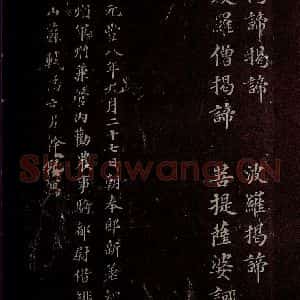 諦揭諦 波羅揭諦
羅僧揭諦 菩提薩婆
元豐八年九月二十七日朝奉郎新差知
州軍州兼管內勸農事騎都尉借緋
山蘇軾為
Shufawang.CN